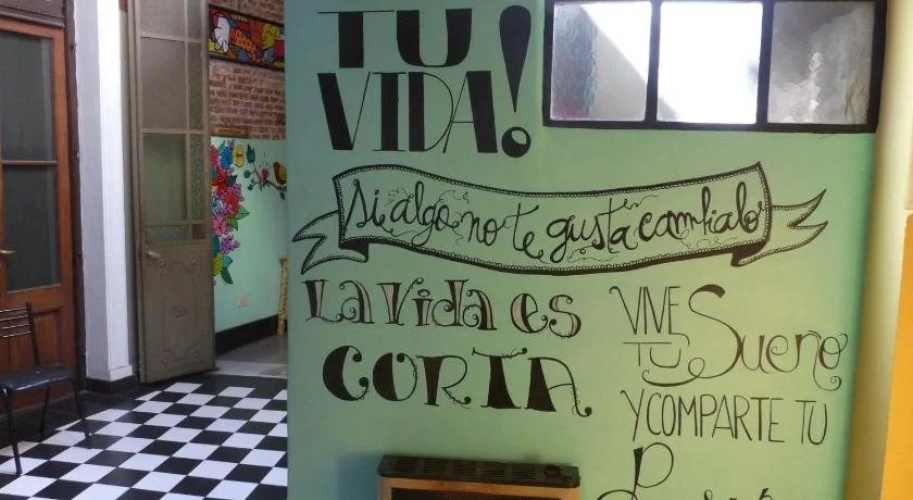 TU
VIDA!
si algo no te gusta cambialo
La vida es
CORTA
VIVE
TU Sueño
Y COMPARTE TU